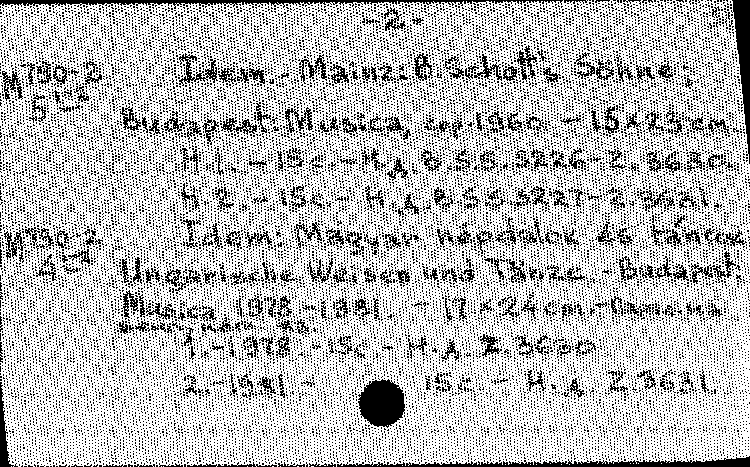 -2-
M 790-2 Idem.- Mainz: B. Schott's Söhne;
5
Budapest: Musica, cop. 1960 - 15x23 cm.
H.1. - 15c. - H.A. B.S.S. 3226-Z. 3630.
H.2. - 15c. - H.A. B.S.S. 3227-Z. 3631.
M 790-2 Idem: Magyar népdalok és táncok
4
Ungarische Weisen und Tänze. - Budapest:
Musica, 1978-1981. - 17x24 cm.-
1.-1978.-15c.- H.A. Z. 3630
2.-1981- 15c - H.A. Z 3631.